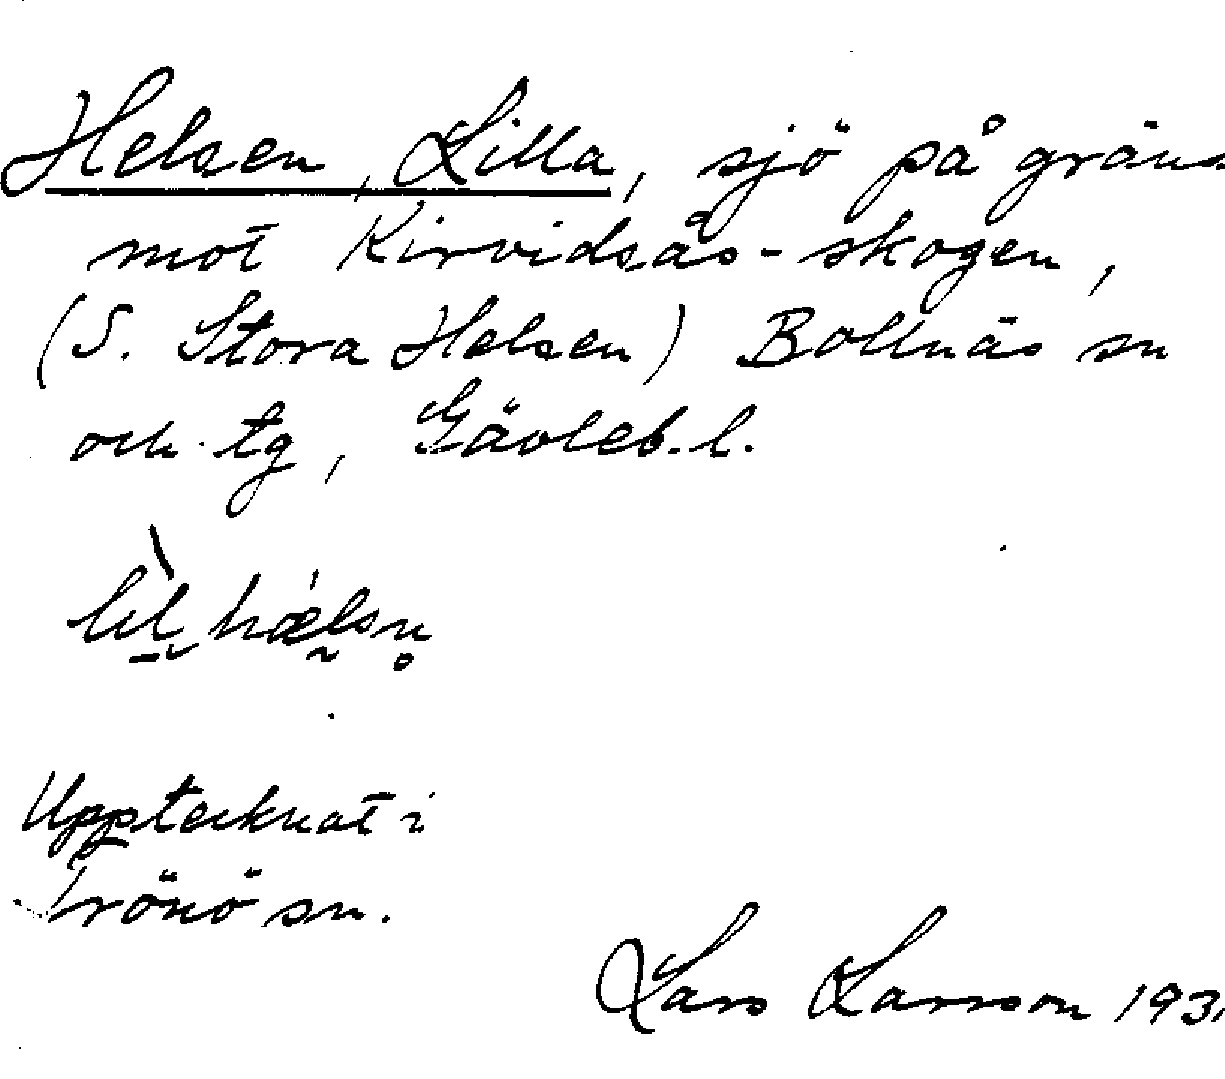 Helsen, Lilla, sjö på gräns
mot Kirvidsås-skogen,
(S. Stora Helsen) Bollnäs sn
och tg, Gävleb. l.
Upptecknat i
Trönö sn.
Lars Larsson 193